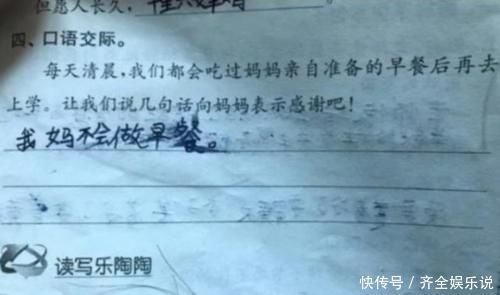 但愿人长久，
四、口语交际。
每天清晨，我们都会吃过妈妈亲自准备的早餐后再去
上学。让我们说几句话向妈妈表示感谢吧！
我妈不会做早餐。
读写乐陶陶
快传号 / 齐全娱乐说